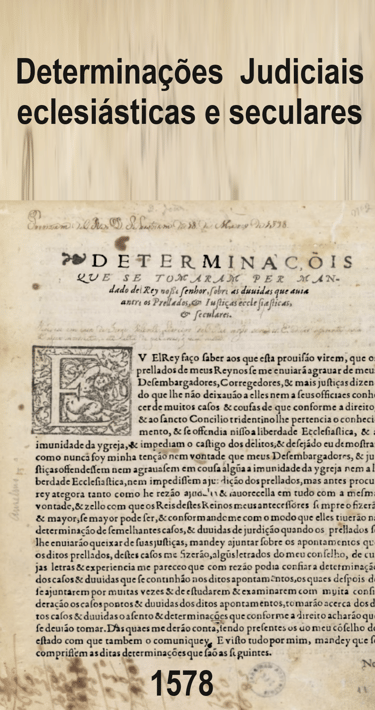 Determinações Judiciais
eclesiásticas e seculares
DETERMINAÇÕIS
QUE SE TOMARAM PER MAN-
dado del Rey nosso senhor, sobre as duuidas que auia
antre os Prellados, & Iustiças ecclesiasticas,
& seculares.
EV ElRey faço saber aos que esta prouisão virem, que os
prellados de meus Reynos se me enuiarã agrauar de meus
Desembargadores, Corregedores, & mais justiças dizen
do que lhe não deixauão a elles nem a seus officiaes conhe
cer de muitos casos & cousas de que conforme a direito,
& ao sancto Concilio tridentino lhe pertencia o conheci
mento, & se offendia nisso a liberdade Ecclesiastica, & a
imunidade da ygreja, & impediam o castigo dos délitos, & desejãdo eu demostrar
como nunca foy minha tenção nem vontade que meus Desembargadores, & ju
stiças offendessem nem agrauassem em cousa algũa a imunidade da ygreja nem a li
berdade Ecclesiastica, nem impedissem a juridição dos prellados, mas antes procu
rey ategora tanto como he rezão ajudala & fauorecella em tudo com a mesma
vontade, & zello com que os Reis destes Reinos meus antecessores sempre o fizerã
& mayor, se mayor pode ser, & conformandome com o modo que elles tiuerão na
determinação de semelhantes casos, & duuidas de jurdição quando os prellados se
lhe enuiarão queixar de suas justiças, mandey ajuntar sobre os apontamentos que
os ditos prellados, destes casos me fizerão, algũs letrados do meu conselho, de cu
jas letras & experiencia me pareceo que com rezão podia confiar a determinação
dos casos & duuidas que se continhão nos ditos apontamentos, os quaes despois de
se ajuntarem por muitas vezes & de estudarem & examinarem com muita consi
deração os casos pontos & duuidas dos ditos apontamentos, tomarão acerca dos di
tos casos & duuidas o asento & determinações que conforme a direito acharão que
se deuião tomar. Das quaes me derão conta, sendo presentes os do meu cõselho do
estado com que tambem o comuniquey. E visto tudo por mim, mandey que se
comprissem as ditas determinações que são as seguintes.
1578